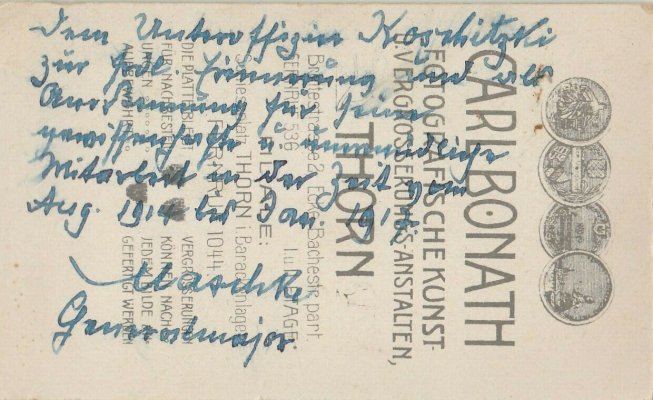 Dem Unteroffizier Koschitzki
zur frdl. Erinnerung und als
Anerkennung für seine
gewissenhafte u. unermüdliche
Mitarbeit in der Zeit vom
Aug. 1914 bis Jan. 1915
Maschke
Generalmajor
CARL BONATH
FOTOGRAFISCHE KUNST-
U. VERGRÖSSERUNGS-ANSTALTEN,
THORN
Breitestrasse 2, Ecke Bachestr. part.
FERNRUF 536
FILIALE:
Schiessplatz THORN i. Baracken
FERNRUF 1044
DIE PLATTE BLEIBT
FÜR NACHBESTEL-
LUNGEN
AUFBEWAHRT
VERGRÖSSERUNGEN
KÖNNEN NACH
JEDEM BILDE
GEFERTIGT WERDEN